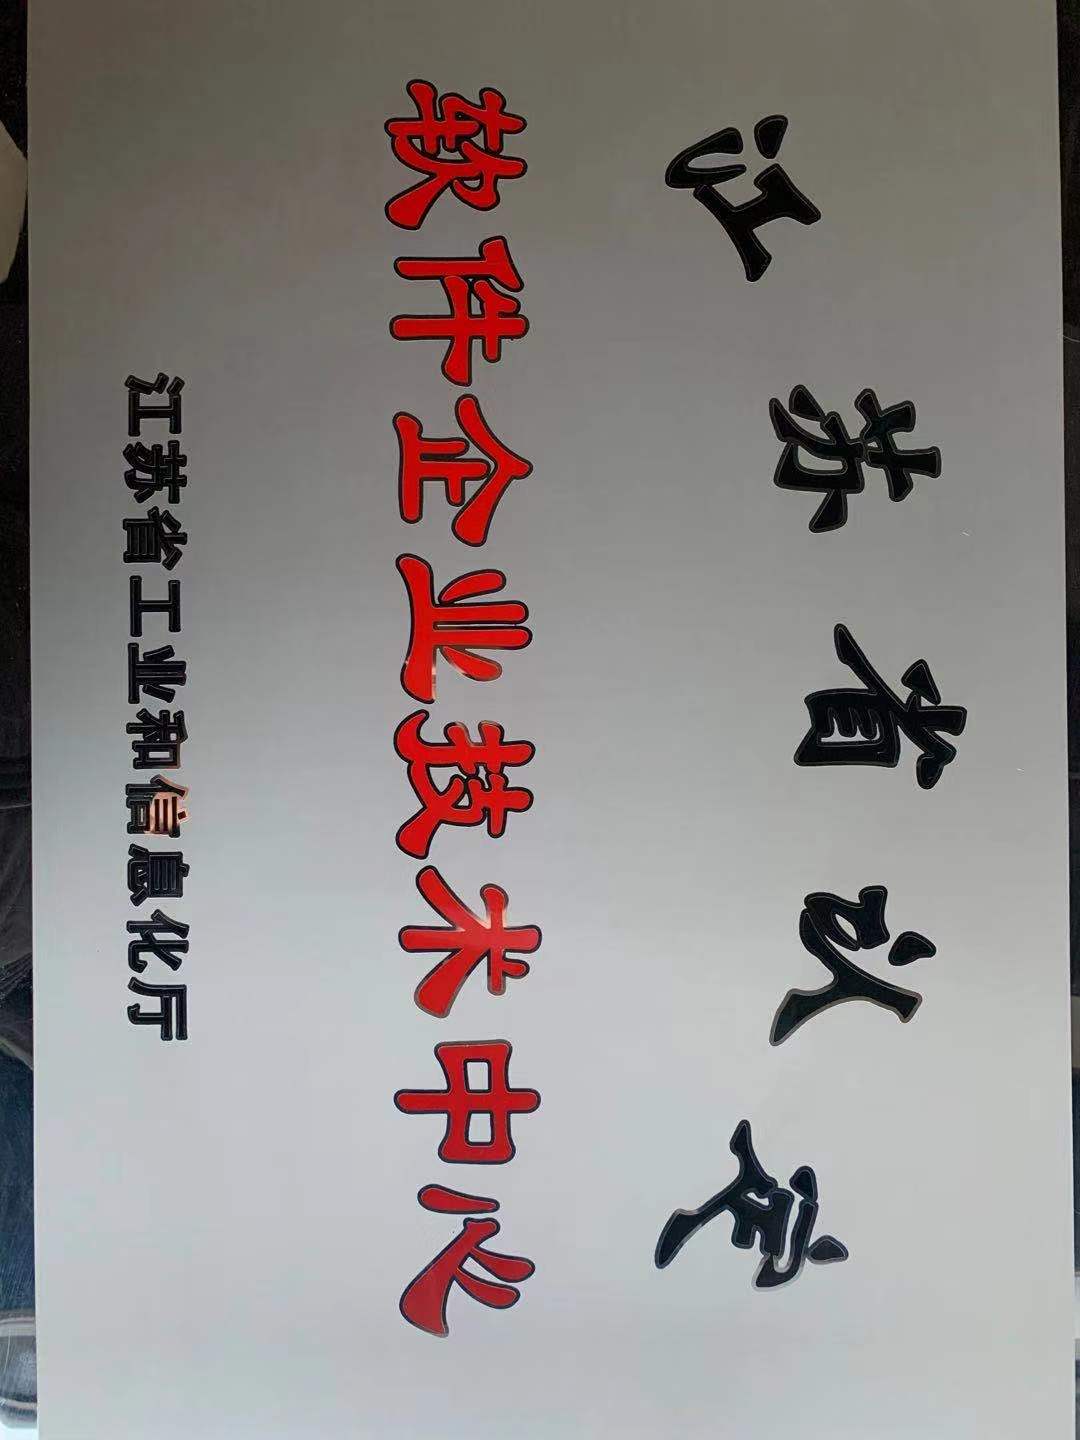 江苏省认定
软件企业业技术中心
江苏省工业和信息化厅